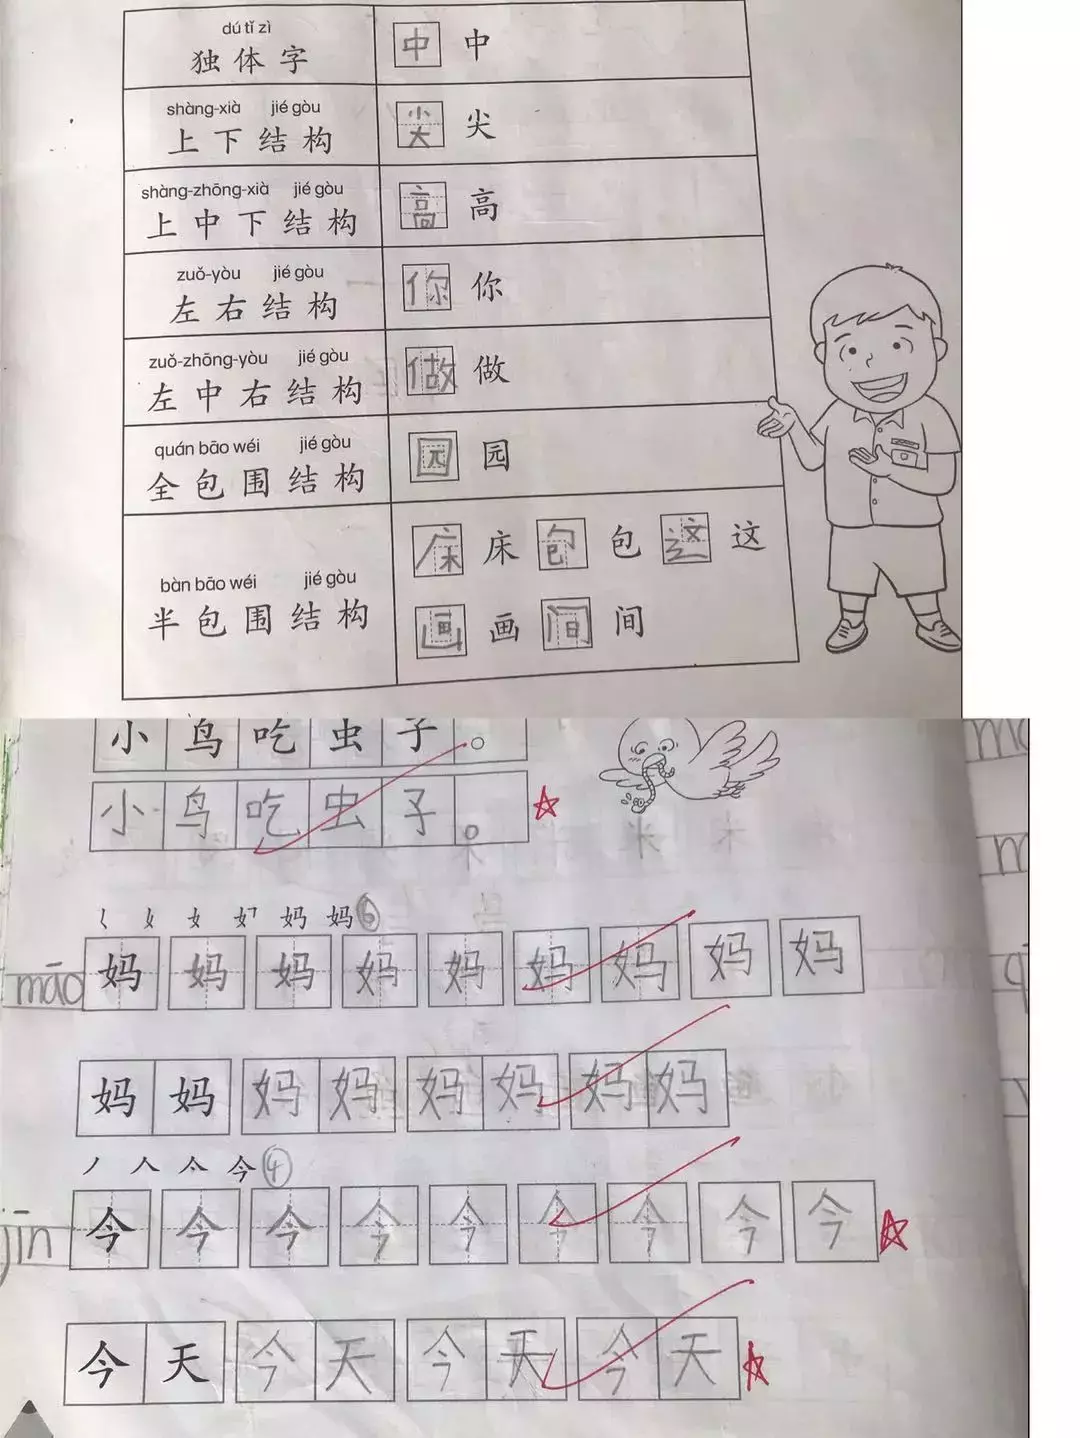 dú tǐ zì
独体字 中 中
shàng-xià jié gòu
上下结构 尖 尖
shàng-zhōng-xià jié gòu
上中下结构 高 高
zuǒ-yòu jié gòu
左右结构 你 你
zuǒ-zhōng-yòu jié gòu
左中右结构 做 做
quán bāo wéi jié gòu
全包围结构 园 园
床 床 包 包 这 这
bàn bāo wéi jié gòu
半包围结构
画 画 间 间
小鸟吃虫子。
小鸟吃虫子。
妈 6
māo 妈 妈 妈 妈 妈 妈 妈 妈 妈
妈妈 妈妈 妈妈 妈妈
今 4
jīn 今 今 今 今 今 今 今 今 今
今天 今天 今天 今天